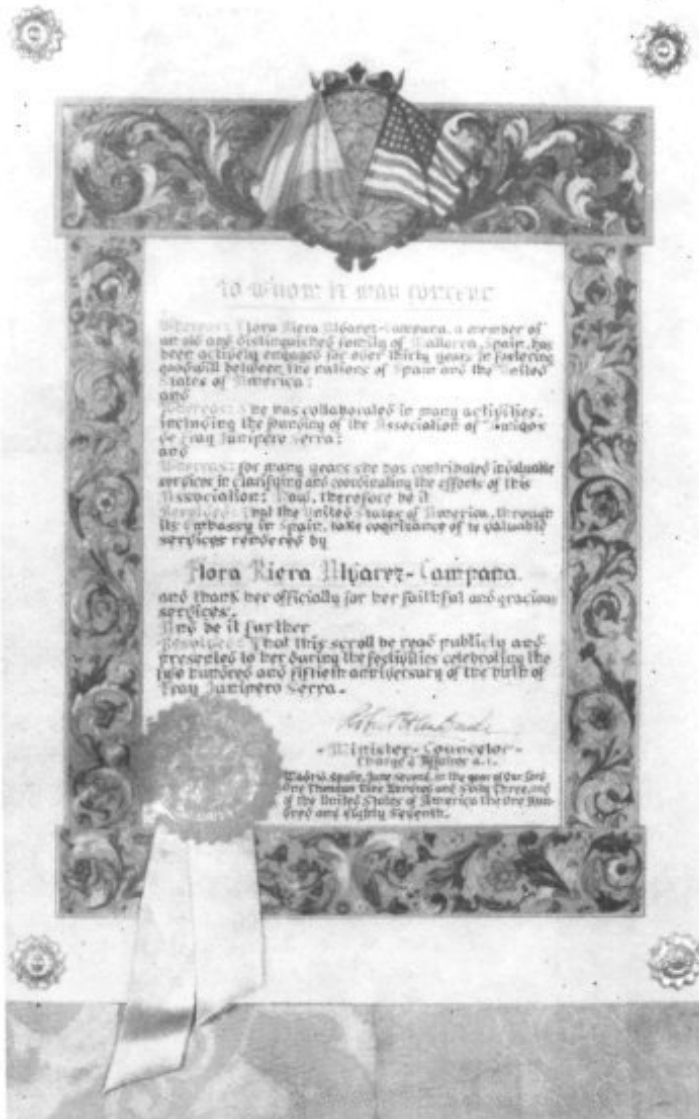 To whom it may concern
Whereas: Flora Riera Alvarez-Campana, a member of
an old and distinguished family of Mallorca, Spain, has
been actively engaged for over thirty years in fostering
goodwill between the nations of Spain and the United
States of America:
and
Whereas: She has collaborated in many activities,
including the founding of the Association of Amigos
de Fray Junipero Serra:
and
Whereas: for many years she has contributed invaluable
services in clarifying and coordinating the efforts of this
Association: Now, therefore be it
Resolved: That the United States of America, through
its Embassy in Spain, take cognizance of ye valuable
services rendered by
Flora Riera Alvarez-Campana.
and thank her officially for her faithful and gracious
services.
And be it further
Resolved: That this scroll be read publicly and
presented to her during the festivities celebrating the
two hundred and fiftieth anniversary of the birth of
Fray Junipero Serra.
- Minister-Councelor-
Chargé d'Affaires a.i.
Madrid, Spain, June second, in the year of Our Lord
One Thousand Nine Hundred and Sixty Three, and
of the United States of America the One Hun-
dred and Eighty Seventh.